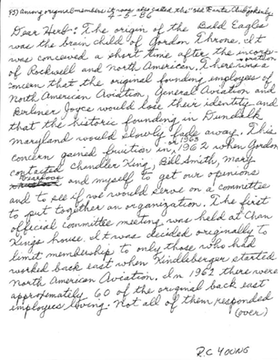 4-3-86
Dear Herb: The origin of the Bald Eagles
was the brain child of Gordon Throne. It
was conceived a short time after the incorp-
oration
of Rockwell and North American. There was a
concern that the original founding employees of
North American Aviation, General Aviation and
Berliner Joyce would lose their identity and
that the historic founding in Dundalk
Maryland would slowly fade away. This
concern gained fruition in 1962 when Gordon
contacted Chandler King, Bill Smith, Mary
and myself to get our opinions
and to see if we would serve on a committee
to put together an organization. The first
official committee meeting was held at Chan
Kings house. It was decided originally to
limit membership to only those who had
worked back east when Kindleberger started
North American Aviation. In 1962 there were
approximately 60 of the original back east
employees living. Not all of them responded
(over)
R.C YOUNG